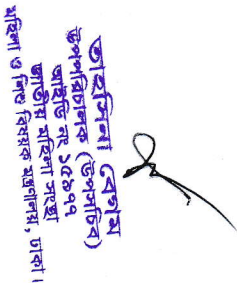 তাহমিনা বেগম
উপপরিচালক (উপসচিব)
আইডি নং ১৫৬৭৭
জাতীয় মহিলা সংস্থা
মহিলা ও শিশু বিষয়ক মন্ত্রণালয়, ঢাকা।